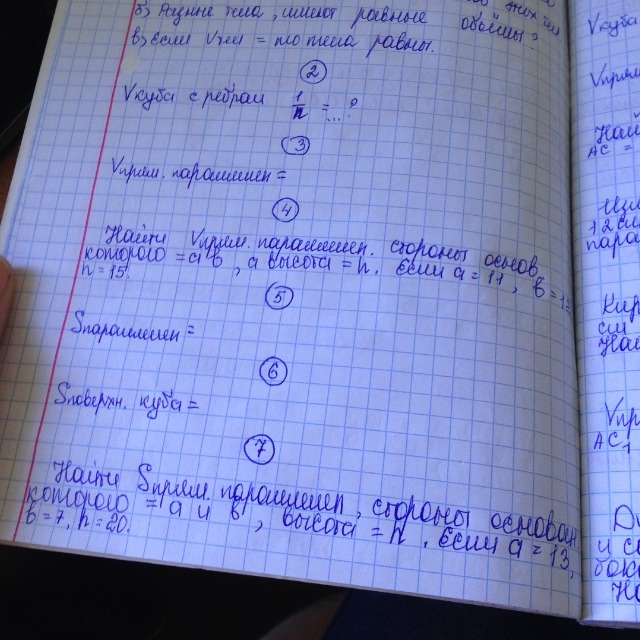 б) Разные тела, имеют равные объёмы?
в) если Vтел = то тела равны.
2
Vкуба с ребром 1/n = ...?
3
Vпрям. параллелеп =
4
Найти Vпрям. параллелеп. стороны основ.
которого = а в, а высота = h. если а = 11, в = 1
h = 15.
5
Sпараллелеп =
6
Sповерхн. куба =
7
Найти Sпрям. параллелеп, стороны основан
которого = а и в, высота = h. Если а = 13,
в = 7, h = 20.
Vкуба
Vпрям
Най
АС =
12
пара
Кир
си
Най
Vпр
АС1
и со
боко
На